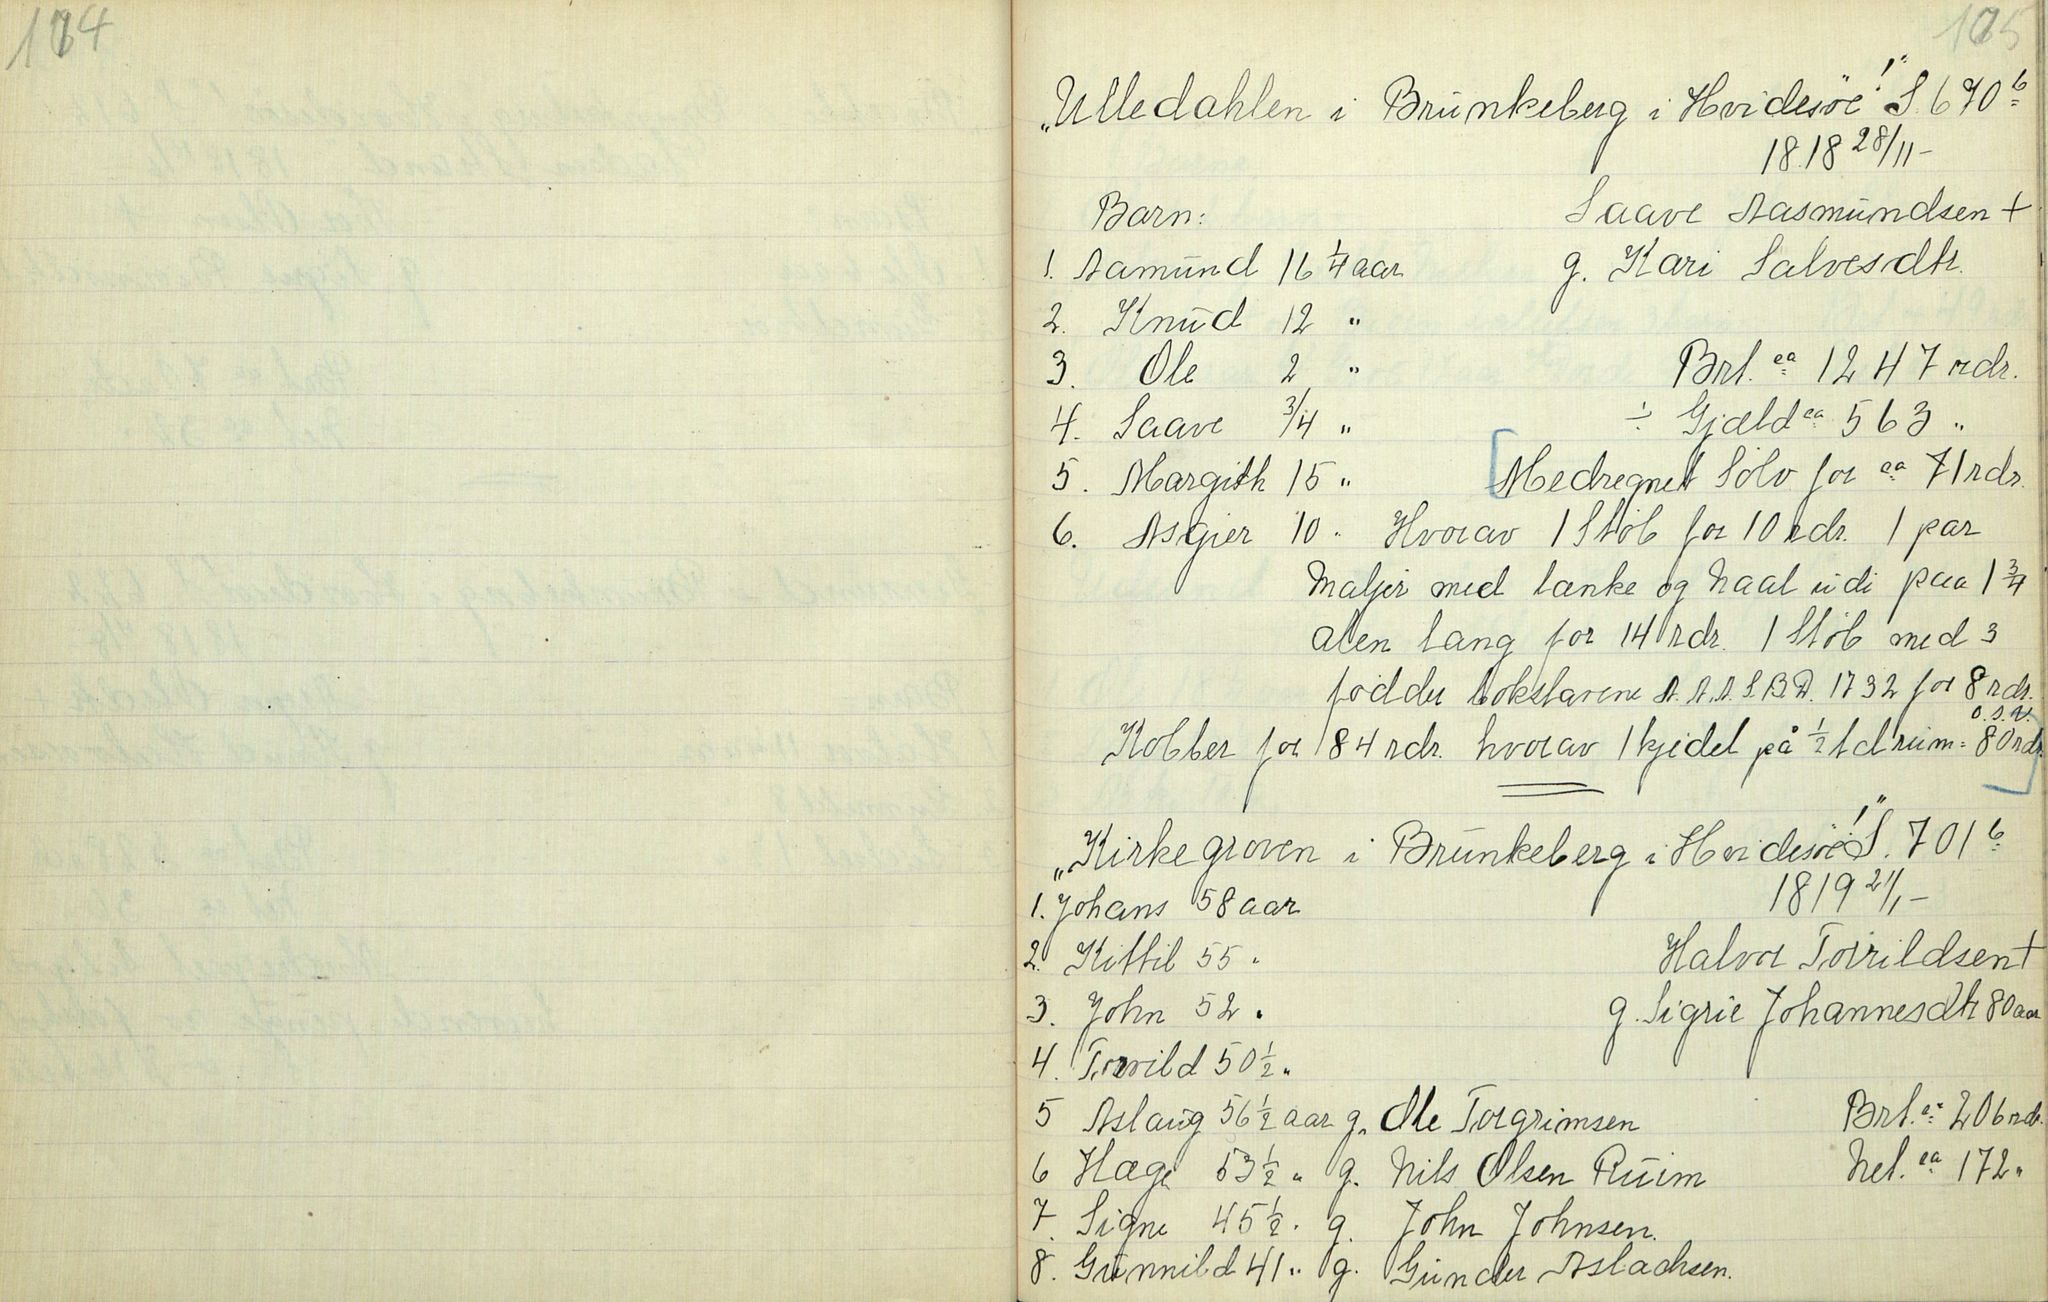 174
175
„Ulledahlen i Brunkeberg i Hvidesöe!" S. 690 b
1818 28/11 -
Barn: Saave Aasmundsen +
1. Aamund 16 1/4 aar g. Kari Salvesdtr.
2. Knud 12 "
3. Ole 2 " Brt. ca 1247 rdr.
4. Saave 3/4 " ÷ Gjæld ca 563 "
5. Margith 15 " [Medregnet Sölv for ca 71 rdr.
6. Asgier 10 " Hvorav 1 Stöb for 10 rdr. 1 par
Maljer med lænke og Naal udi paa 1 3/4
alen lang for 14 rdr. 1 Stöb med 3
födder bokstavene A. A. A. S. B. D. 1732 for 8 rdr.
o.s.v.
Kobber for 184 rdr. hvorav 1 kjedel på 1/2 td rum = 80 rdr.]
„Kirkegroven i Brunkeberg i Hvidesöe!" S. 701 b
1. Johans 58 aar 1819 21/1 -
2. Kittil 55 " Halvor Torrildsen +
3. John 52 " g. Sigrie Johannesdtr 80 aar
4. Torrild 50 1/2 "
5 Aslaug 56 1/2 aar g. Ole Torgrimsen Brt. ca 206 rdr.
6 Hæge 53 1/2 " g. Nils Olsen Ruim Net. ca 172 "
7. Signe 45 1/2 " g. John Johnsen.
8. Gunnild 41 " g. Gunder Aslachsen.